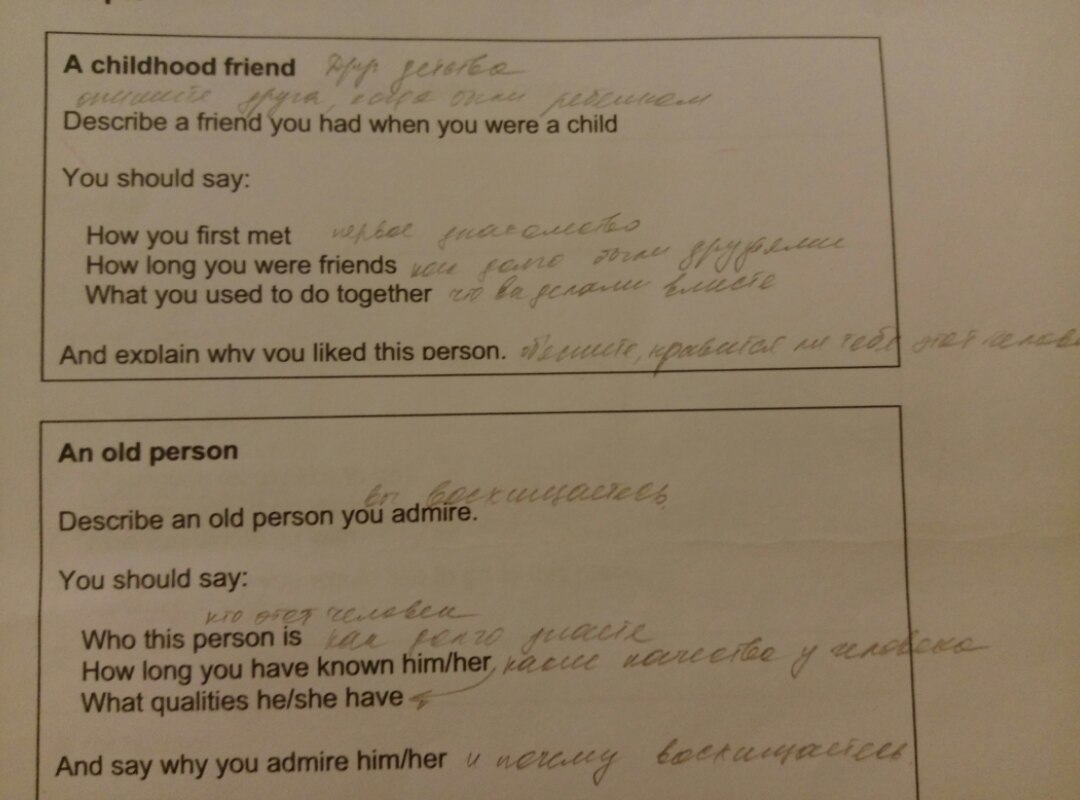 A childhood friend Друг детства
опишите друга, когда были ребенком
Describe a friend you had when you were a child
You should say:
How you first met первое знакомство
How long you were friends как долго были друзьями
What you used to do together что вы делали вместе
And explain why you liked this person. нравится ли тебе этот
An old person
вы восхищаетесь
Describe an old person you admire.
You should say:
кто этот человек
Who this person is как долго знаете
How long you have known him/her, какие качества у человека
What qualities he/she have
And say why you admire him/her и почему восхищаетесь